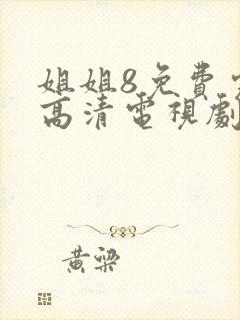 姐姐8免費
高清電視劇
黃梁